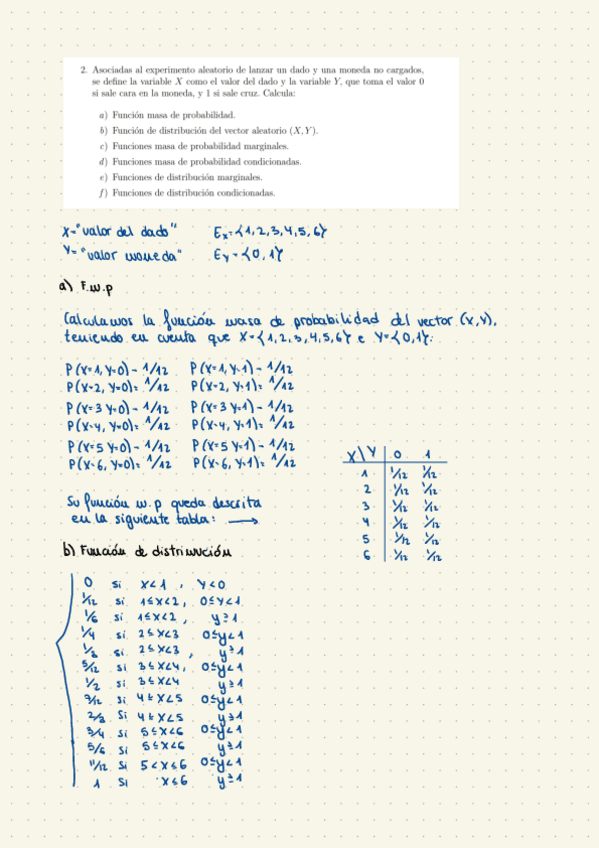 2. Asociadas al experimento aleatorio de lanzar un dado y una moneda no cargados,
se define la variable X como el valor del dado y la variable Y, que toma el valor 0
si sale cara en la moneda, y 1 si sale cruz. Calcula:
a) Función masa de probabilidad.
b) Función de distribución del vector aleatorio (X, Y).
c) Funciones masa de probabilidad marginales.
d) Funciones masa de probabilidad condicionadas.
e) Funciones de distribución marginales.
f) Funciones de distribución condicionadas.
X="valor del dado" Ex={1,2,3,4,5,6}
Y="valor moneda" Ey={0,1}
a) F.m.p
Calculamos la función masa de probabilidad del vector (X,Y),
teniendo en cuenta que X={1,2,3,4,5,6} e Y={0,1}:
P(X=1, Y=0)=1/12 P(X=1, Y=1)=1/12
P(X=2, Y=0)=1/12 P(X=2, Y=1)=1/12
P(X=3 Y=0)=1/12 P(X=3 Y=1)=1/12
P(X=4, Y=0)=1/12 P(X=4, Y=1)=1/12
P(X=5 Y=0)=1/12 P(X=5 Y=1)=1/12
P(X=6, Y=0)=1/12 P(X=6, Y=1)=1/12
X\Y 0 1
1 1/12 1/12
2 1/12 1/12
3 1/12 1/12
4 1/12 1/12
5 1/12 1/12
6 1/12 1/12
Su función m.p queda descrita
en la siguiente tabla: →
b) Función de
0 si X<1, Y<0
1/12 si 1≤X<2, 0≤Y<1
1/6 si 1≤X<2, y≥1
1/4 si 2≤X<3 0≤y<1
1/3 si 2≤X<3, y≥1
5/12 si 3≤X<4, 0≤y<1
1/2 si 3≤X<4 y≥1
si 4≤X<5 0≤y<1
2/3 si 4≤X<5 y≥1
3/4 si 5≤X<6 0≤y<1
5/6 si 5≤X<6 y≥1
11/12 si 5<X≤6 0≤y<1
1 si X≤6 y≥1